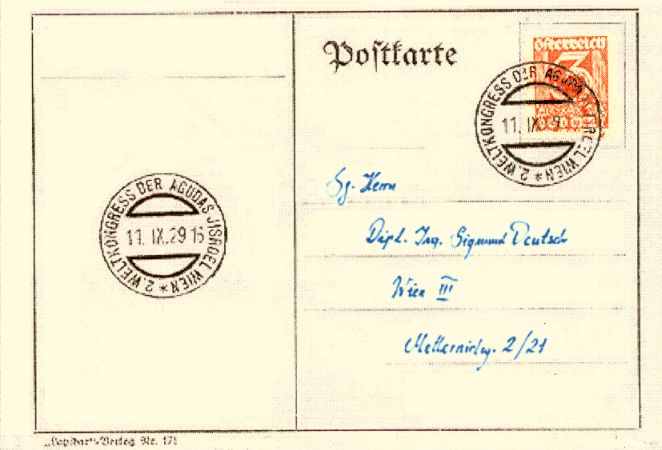 Postkarte
österreich
13
2. WELTKONGRESS DER AGUDAS JISROEL WIEN *
11. IX. 29
2. WELTKONGRESS DER AGUDAS JISROEL WIEN *
11. IX. 29 16
Sg. Herrn
Dipl. Ing. Sigmund Deutsch
Wien III
Metternichg. 2/21
-Verlag Nr. 171